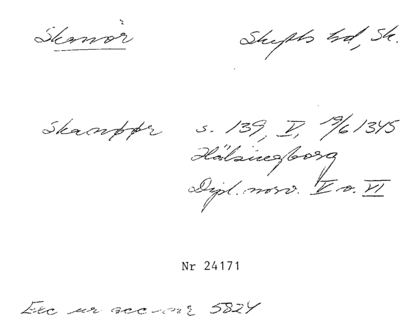 Skanör Skytts hd, Sk.
Skanppr s. 139, V, 19/6 1345
Hälsingborg
Dipl. norv. V o. VI
Nr 24171
Exc ur acc-nr 5824